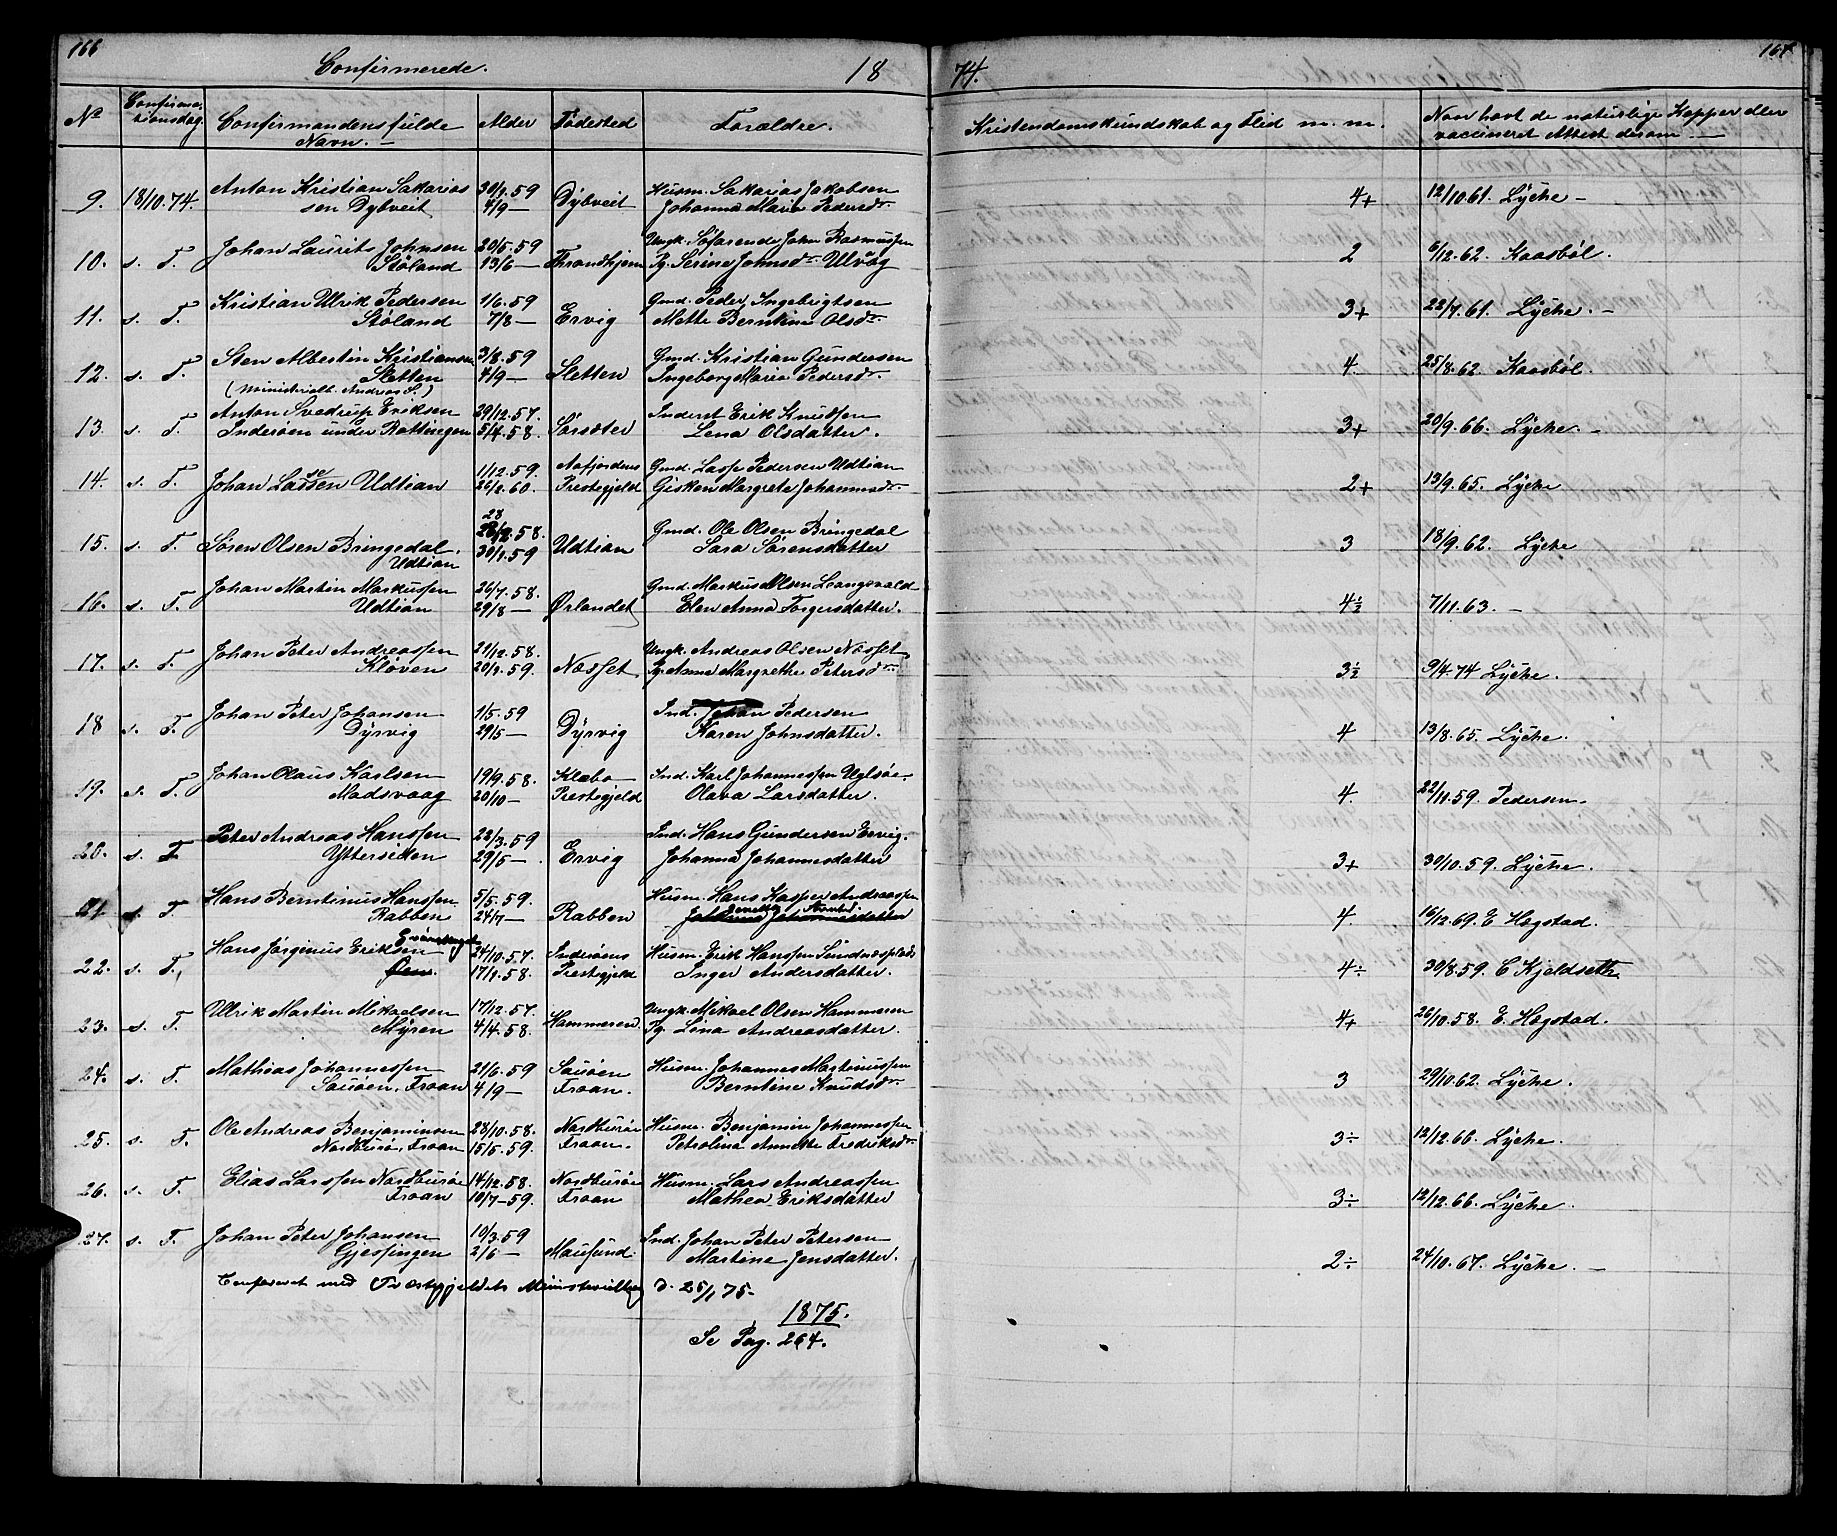 166
Confirmerede.
18
74.
167
No
Confirma-
tionsdag.
Confirmandens fulde
Navn. —
Alder
Fødested
Forældre.
Kristendomskundskab og Flid m. m.
Naar havt de naturlige Kopper eller
vaccineret Attest derom —
9. 18/10.74. Anton Kristian Sakarias 30/3.59 Dybveit Husm. Sakarias Jakobsen 4+ 12/10.61. Lyche —
sen Dybveit 4/9 — Johanna Maria Pedersdr.
10. s. T. Johan Laurits Johnsen 20/5.59 Throndhjem Ungk. Søfarende John Rasmussen 2 6/12.62. Kaasbøl.
Støland 13/6 — Pg. Serine Johnsdr. Ulvåg
11. s. T. Kristian Ulrik Pedersen 1/6.59 Ervig Gmd. Peder Ingebrigtsen 3+ 22/7.61. Lyche. —
Støland 7/8 — Mette Berntine Olsdr.
12. s. T. Sten Albertin Kristiansen 3/8.59 Sletten Gmd. Kristian Gundersen 4. 25/8.62. Kaasbøl.
Sletten 4/9 — Ingeborg Maria Pedersdr.
(Ministerialb. Andreas S.)
13. s. T. Anton Svedrup Eriksen 29/12.57. Sørsæter Inderst Erik Knudsen 3+ 20/9.66. Lyche. —
Inderøen under Rottingen 5/4.58. Lena Olsdatter.
14. s. T. Johan Lassen Udtian 1/12.59. Aafjordens Gmd. Lasse Pedersen Udtian 2+ 13/9.65. Lyche
26/2.60. Prestegjeld Gisken Margrete Johannesdr.
15. s. T. Søren Olsen Bringedal. 28 58. Udtian Gmd. Ole Olsen Bringedal 3 18/9.62. Lyche
Udtian 30/1.59 Sara Sørensdatter
16. s. T. Johan Martin Markussen 26/7.58. Ørlandet Gmd. Markus Olsen Langsvald 4½ 7/11.63. —
Udtian 29/8 — Elen Anna Torgersdatter.
17. s. T. Johan Peter Andreassen 21/12.58. Næsset Ungk. Andreas Olsen Næsset 3½ 9/4.74 Lyche.
Kløven 20/2.59. Pg. Anne Margrethe Petersdr.
18 s. T. Johan Peter Johansen 1/5.59 Dyrvig Ind. Johan Pedersen 4 13/8.65. Lyche.
Dyrvig 29/5 — Karen Johnsdatter.
19. s. T. Johan Olaus Karlsen 19/9.58. Klæbo Ind. Karl Johannessen Uglsøe 4. 22/11.59. Pedersen.
Madsvaag 20/10 — Prestegjeld Olava Larsdatter.
20. s. T. Peter Andreas Hanssen 22/3.59 Ervig Ind. Hans Gundersen Ervig. 3+ 30/10.59. Lyche.
Yttersiden 29/5 — Johanna Johannesdatter
21. s. T. Hans Berntinus Hanssen 5/5.59. Rabben Husm. Hans Kasper Andreassen 4. 16/12.69. E Hegstad.
Rabben 24/7 — Johanna Johannesdatter
22. s. T. Hans Jørginus Eriksen 24/10.57. Inderøens Husm. Erik Hanssen Sundnæsplads 4÷ 30/8.59. C Kjeldseth
Øen. 17/1.58. Prestegjeld Inger Andersdatter.
23. s. T. Ulrik Martin Mikaelsen 17/12.57. Hammeren Ungk. Mikael Olsen Hammeren 4+ 26/10.58. E. Hegstad.
Myren 4/4.58. Pg. Lina Andreasdatter.
24. s. T. Mathias Johannessen 21/6.59 Sauøen Husm. Johannes Martinussen 3 29/10.62. Lyche.
Sauøen, Froan 4/9 Froan. Berntine Knudsdr.
25. s. T. Ole Andreas Benjaminsen 28/10.58. Nordburøi Husm. Benjamin Johannessen 3÷ 12/12.66. Lyche.
Nordburøi, Froan 15/5.59. Froan. Petrolina Annette Fredriksdr.
26. s. T. Elias Larssen Nordburøi 14/12.58. Nordburøi Husm. Lars Andreassen 3÷ 12/12.66. Lyche.
Froan 10/7-59. Froan Mathea Eriksdatter
27. s. T. Johan Peter Johansen 10/3.59 Mausund. Ind. Johan Peter Petersen 2÷ 24/10.67. Lyche. —
Gjessingen 2/6 — Martine Jensdatter.
Confereret med Præstegjeldets Ministerialbog d. 25/1 75.
1875.
Se Pag. 264.